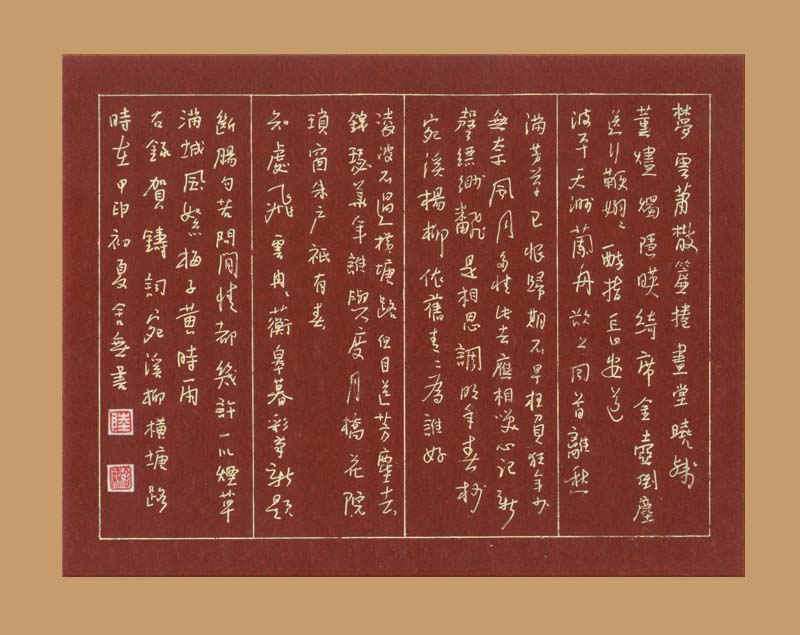 夢雲蕭散簾捲畫堂曉殘
薰燼燭隱映綺席金壺倒塵
送行鞭嫋々醉指長安道
波平天渺蘭舟欲上回首離愁
滿芳草已恨歸期不早枉負狂年少
無奈風月多情此去應相笑心記新
聲縹緲翻是相思調明年春杪
宛溪楊柳依舊青々為誰好
凌波不過橫塘路但目送芳塵去
錦瑟華年誰與度月橋花院
瑣窗朱戶祇有春
知處飛雲冉々蘅皋暮彩筆新題
斷腸句若問閒情都幾許一川煙草
滿城風絮梅子黃時雨
右錄賀鑄詞宛溪柳橫塘路
時在甲申初夏舍無書